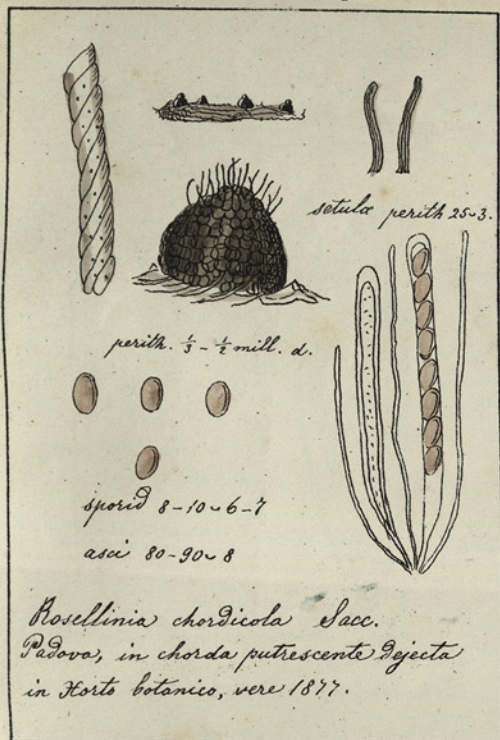 setulæ perith 25~3.
perith. 1/3 - 1/2 mill. d.
sporid 8-10~6-7
asci 80-90~8
Rosellinia chordicola Sacc.
Padova, in chorda putrescente dejecta
in Horto botanico, vere 1877.